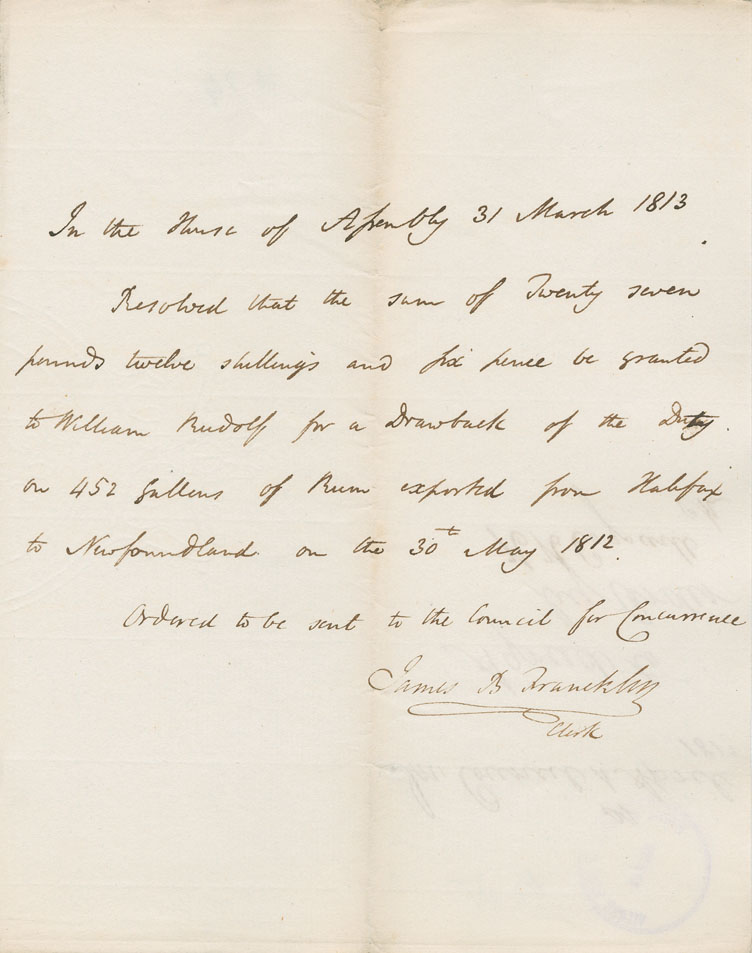 In the House of Assembly 31 March 1813
Resolved that the sum of Twenty seven
pounds twelve shillings and six pence be granted
to William Rudolf for a Drawback of the Duty
on 452 Gallons of Rum exported from Halifax
to Newfoundland on the 30t May 1812.
Ordered to be sent to the Council for Concurrence
James B Francklin
Clerk